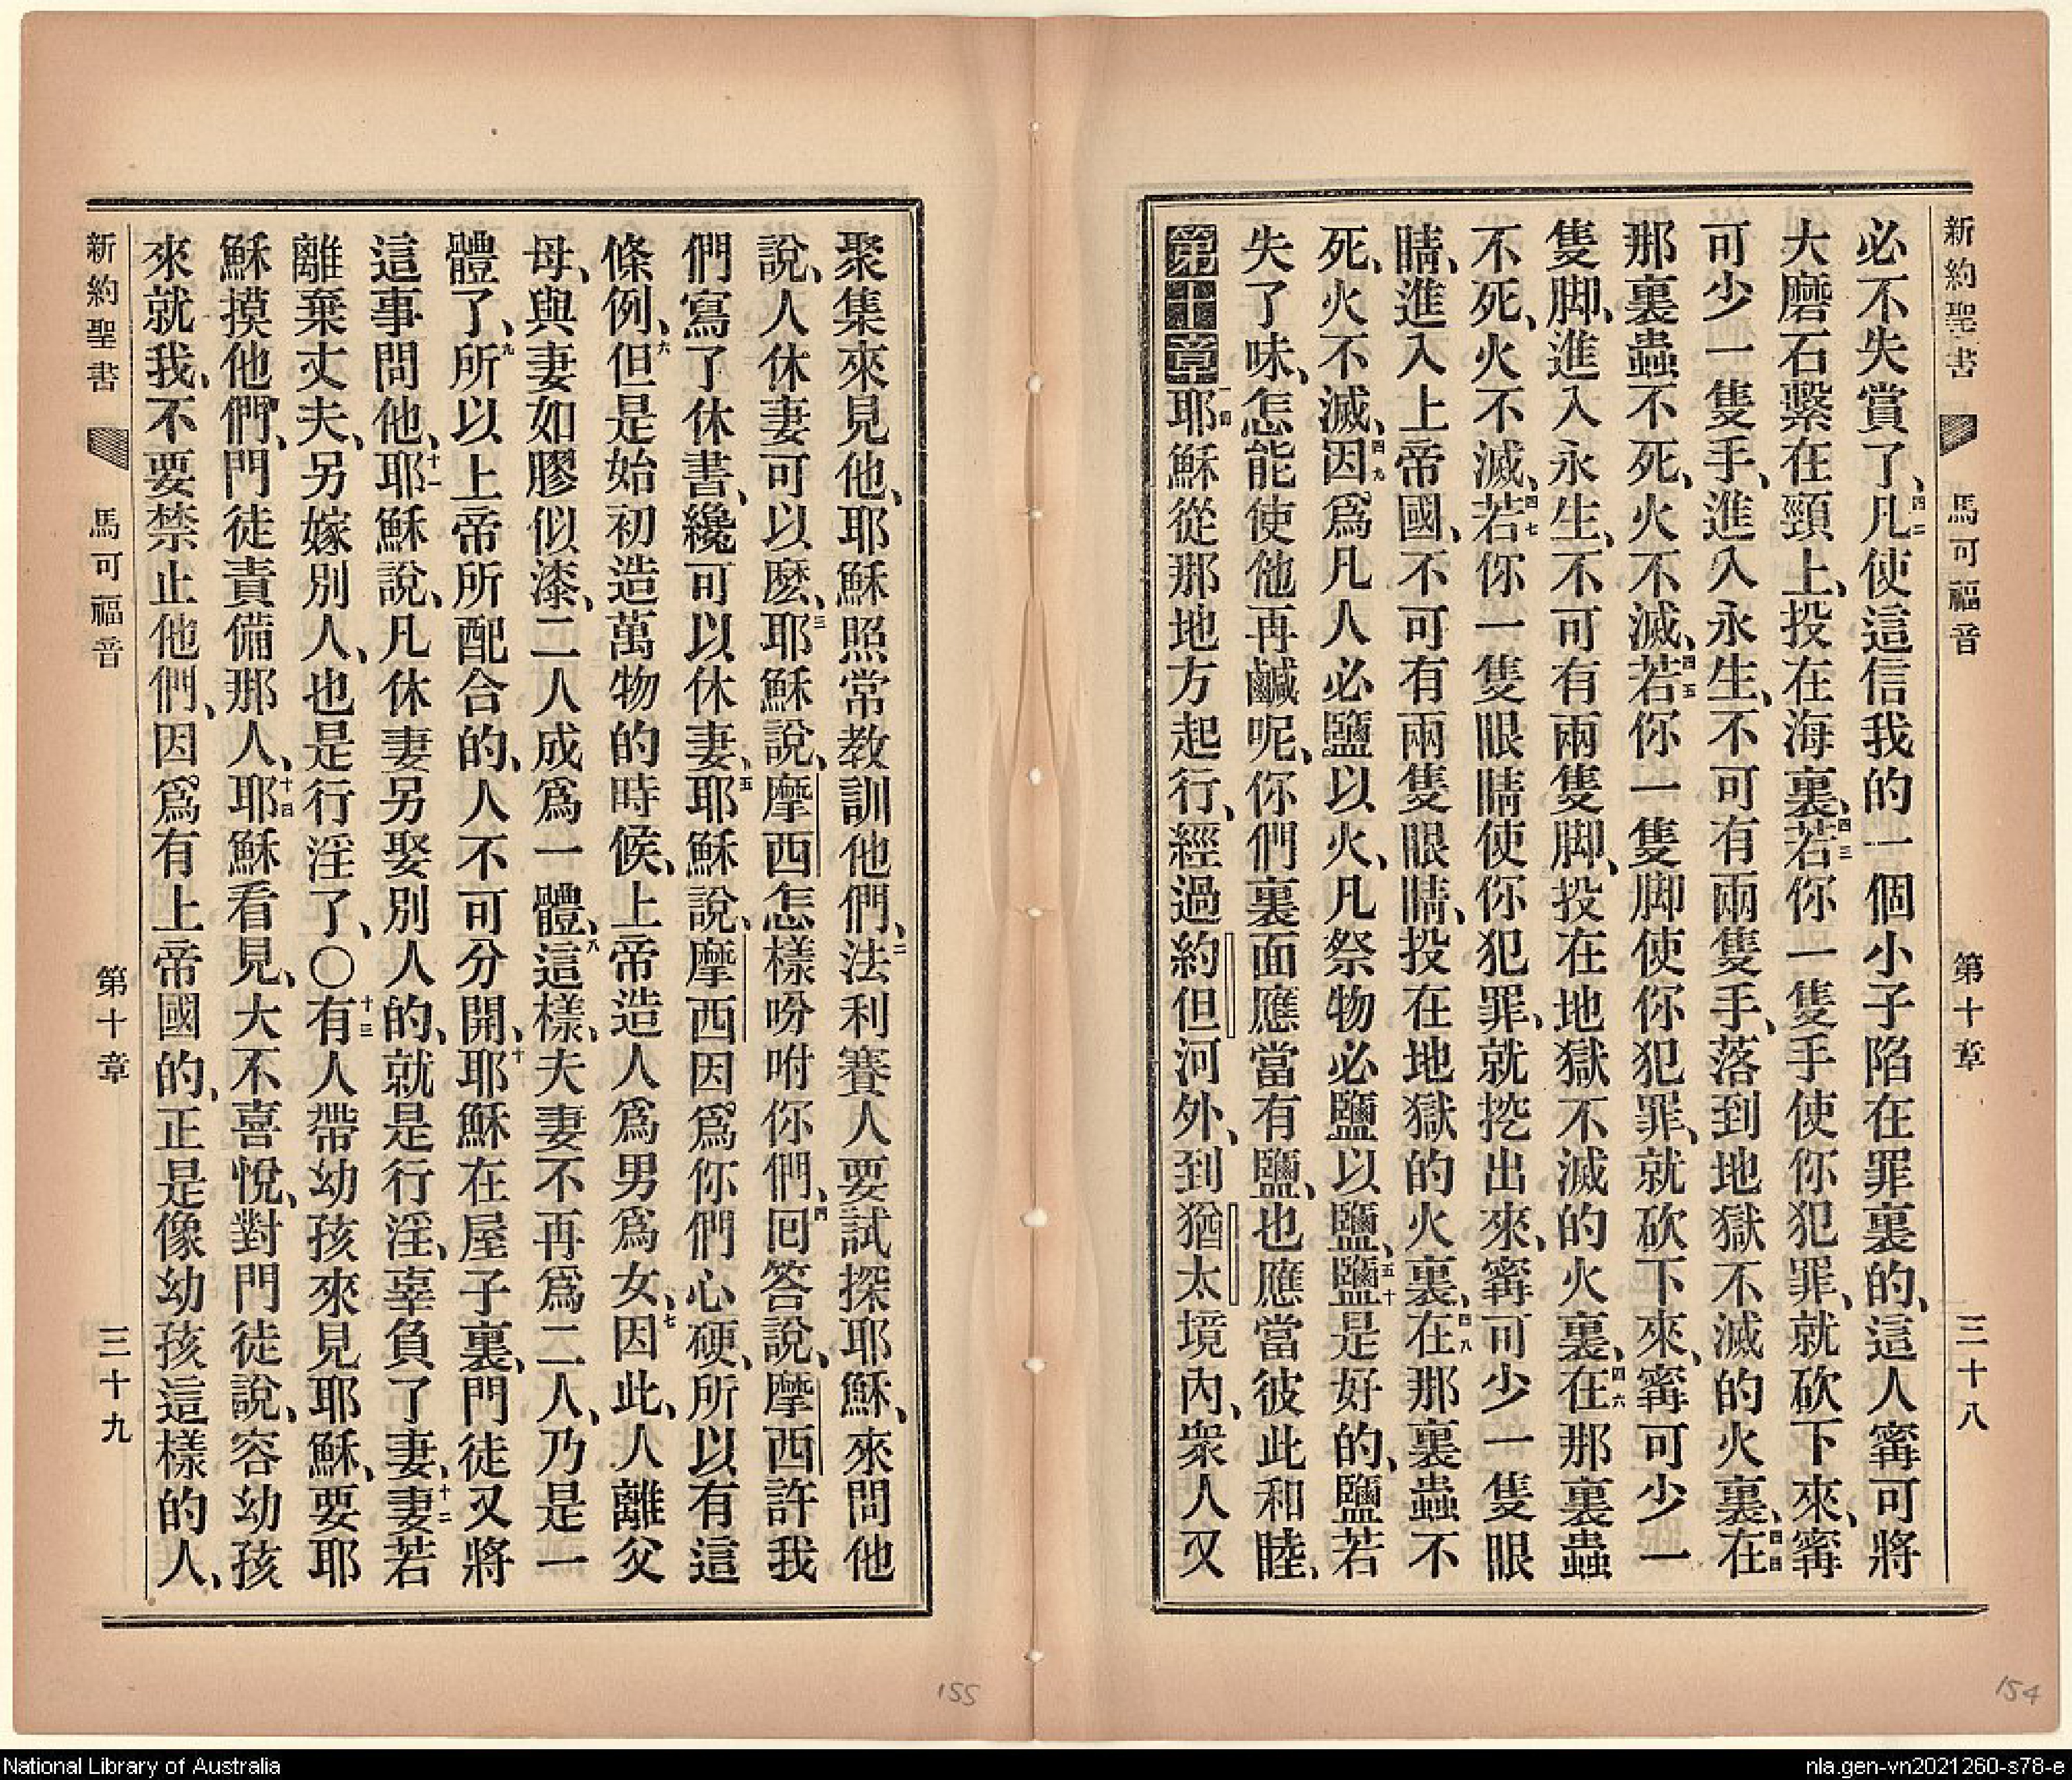 新約聖書 馬可福音 第十章 三十八
必不失賞了、四二凡使這信我的一個小子陷在罪裏的、這人寗可將
大磨石繫在頸上、投在海裏、四三若你一隻手使你犯罪、就砍下來、寗
可少一隻手、進入永生、不可有兩隻手、落到地獄不滅的火裏、四四在
那裏蟲不死、火不滅、四五若你一隻脚使你犯罪、就砍下來、寗可少一
隻脚、進入永生、不可有兩隻脚、投在地獄不滅的火裏、四六在那裏蟲
不死、火不滅、四七若你一隻眼睛使你犯罪、就挖出來、寗可少一隻眼
睛、進入上帝國、不可有兩隻眼睛、投在地獄的火裏、四八在那裏蟲不
死、火不滅、四九因爲凡人必鹽以火、凡祭物必鹽以鹽、五十鹽是好的、鹽若
失了味、怎能使他再鹹呢、你們裏面應當有鹽、也應當彼此和睦、
第十章 一耶穌從那地方起行、經過約但河外、到猶太境內、衆人又
聚集來見他、耶穌照常教訓他們、二法利賽人要試探耶穌、來問他
說、人休妻可以麽、三耶穌說、摩西怎樣吩咐你們、四回答說、摩西許我
們寫了休書、纔可以休妻、五耶穌說、摩西因爲你們心硬、所以有這
條例、六但是始初造萬物的時候、上帝造人爲男爲女、七因此、人離父
母、與妻如膠似漆、二人成爲一體、八這樣、夫妻不再爲二人、乃是一
體了、九所以上帝所配合的、人不可分開、十耶穌在屋子裏、門徒又將
這事問他、十一耶穌說、凡休妻另娶別人的、就是行淫、辜負了妻、十二妻若
離棄丈夫、另嫁別人、也是行淫了、〇十三有人帶幼孩來見耶穌、要耶
穌摸他們、門徒責備那人、十四耶穌看見、大不喜悅、對門徒說、容幼孩
來就我、不要禁止他們、因爲有上帝國的、正是像幼孩這樣的人、
新約聖書 馬可福音 第十章 三十九
155
154
National Library of Australia
nla.gen-vn2021260-s78-e